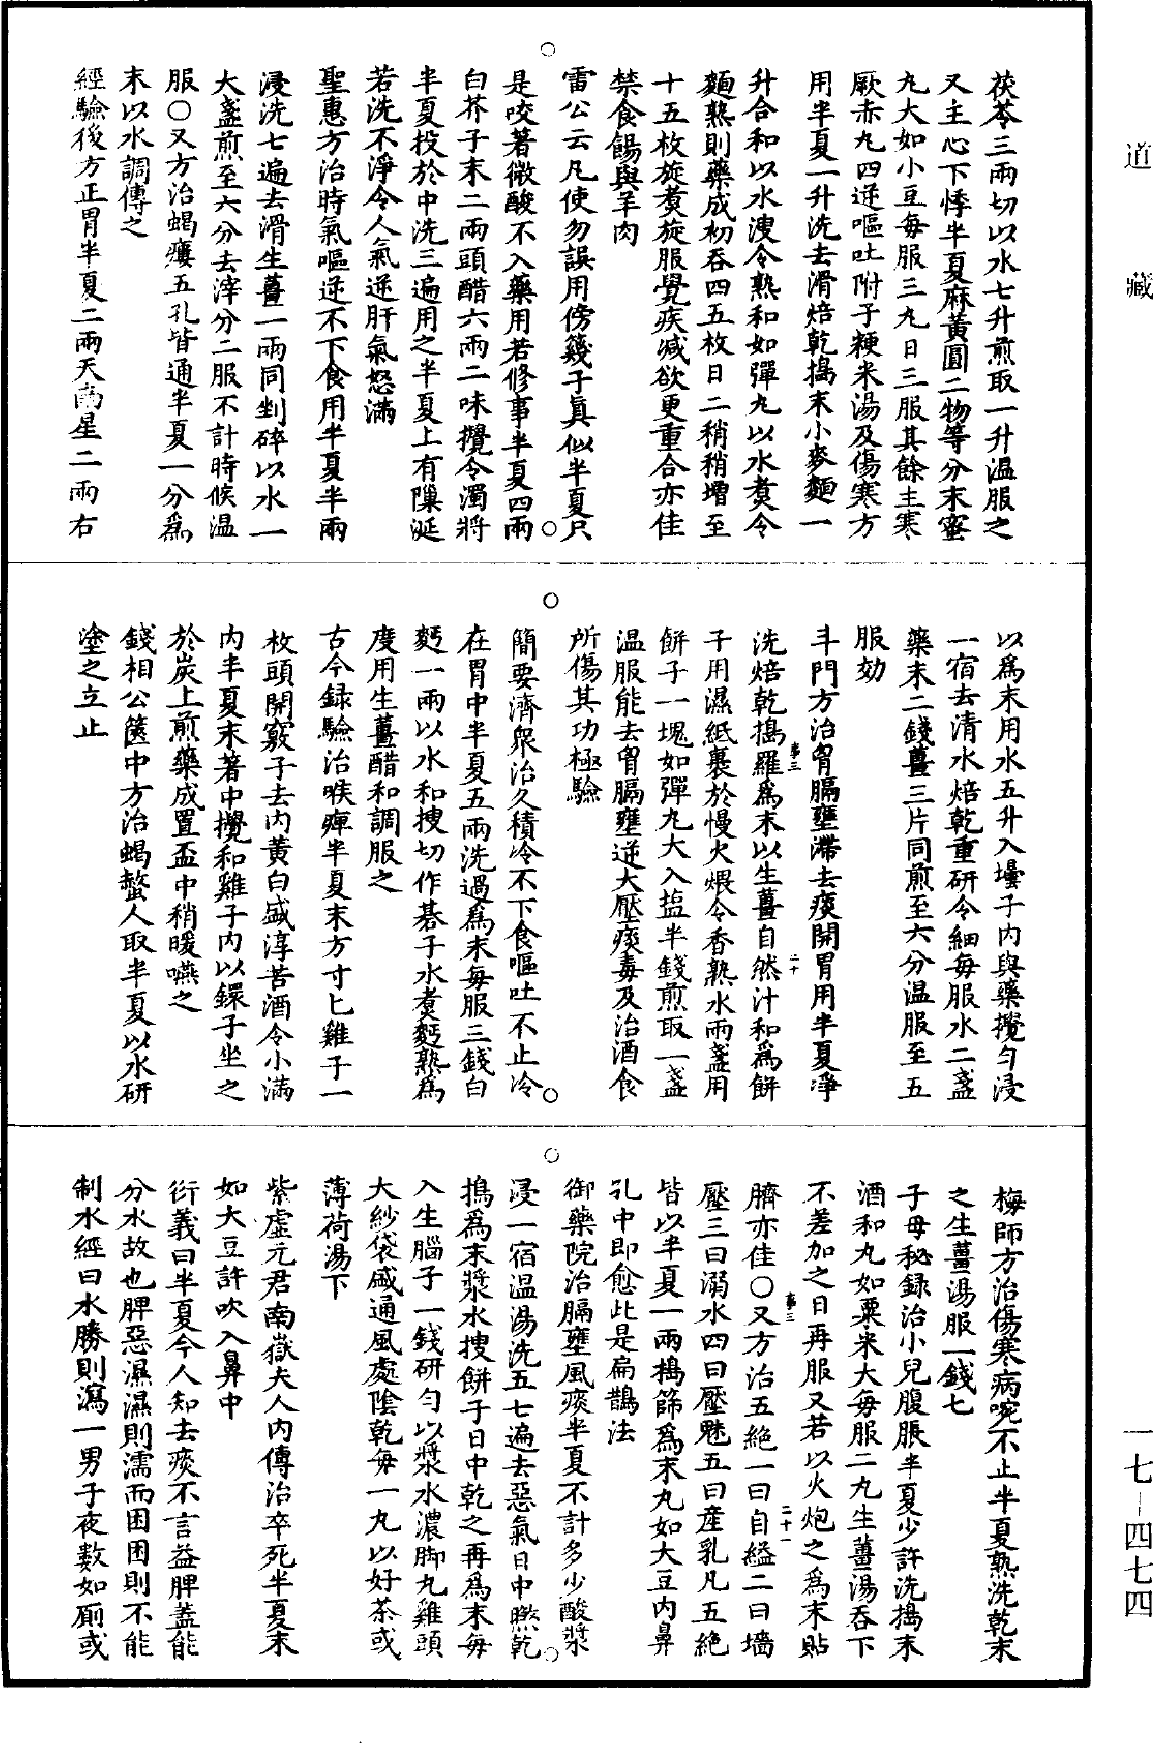 道藏
茯苓三兩切以水七升煎取一升温服之
又主心下悸半夏麻黄圓二物等分末蜜
丸大如小豆每服三丸日三服其餘主寒
厥赤丸四逆嘔吐附子粳米湯及傷寒方
用半夏一升洗去滑焙乾搗末小麥麵一
升合和以水溲令熟和如彈丸以水煑令
麵熟則藥成初吞四五枚日二稍稍增至
十五枚旋煑旋服覺疾減欲更重合亦佳
禁食餳與羊肉
雷公云凡使勿誤用傍簩子真似半夏只
是咬著微酸不入藥用若修事半夏四兩
白芥子末二兩頭醋六兩二味攪令濁將
半夏投於中洗三遍用之半夏上有隟涎
若洗不淨令人氣逆肝氣怒滿
聖惠方治時氣嘔逆不下食用半夏半兩
浸洗七遍去滑生薑一兩同剉碎以水一
大盞煎至六分去滓分二服不計時候温
服○又方治蝎瘻五孔皆通半夏一分爲
末以水調傅之
經驗後方正胃半夏二兩天南星二兩右
以爲末用水五升入壜子内與藥攪匀浸
一宿去清水焙乾重研令細每服水二盞
藥末二錢薑三片同煎至六分温服至五
服効
斗門方治胷膈壅滯去痰開胃用半夏淨
洗焙乾搗羅爲末以生薑自然汁和爲餅
子用濕紙裹於慢火煨令香熟水兩盞用
餅子一塊如彈丸大入塩半錢煎取一盞
温服能去胷膈壅逆大壓痰毒及治酒食
所傷其功極驗
簡要濟衆治久積冷不下食嘔吐不止冷
在胃中半夏五兩洗過爲末每服三錢白
麪一兩以水和搜切作碁子水煑麪熟爲
度用生薑醋和調服之
古今録驗治喉痺半夏末方寸匕雞子一
枚頭開竅子去内黄白盛淳苦酒令小滿
内半夏末著中攪和雞子内以鐶子坐之
於炭上煎藥成置盃中稍暖嚥之
錢相公篋中方治蝎螫人取半夏以水研
塗之立止
梅師方治傷寒病啘不止半夏熟洗乾末
之生薑湯服一錢七
子母秘録治小兒腹脹半夏少許洗搗末
酒和丸如粟米大每服二丸生薑湯吞下
不差加之日再服又若以火炮之爲末貼
臍亦佳○又方治五絶一曰自縊二曰墻
壓三曰溺水四曰壓魅五曰産乳凡五絶
皆以半夏一兩搗篩爲末丸如大豆内鼻
孔中即愈此是扁鵲法
御藥院治膈壅風痰半夏不計多少酸漿
浸一宿温湯洗五七遍去惡氣日中㬠乾
搗爲末漿水搜餅子日中乾之再爲末每
入生腦子一錢研匀以漿水濃脚丸雞頭
大紗袋盛通風處陰乾每一丸以好茶或
薄荷湯下
紫虚元君南嶽夫人内傳治卒死半夏末
如大豆許吹入鼻中
衍義曰半夏今人知去痰不言益脾蓋能
分水故也脾惡濕濕則濡而困困則不能
制水經曰水勝則瀉一男子夜數如厠或
一七—四七四